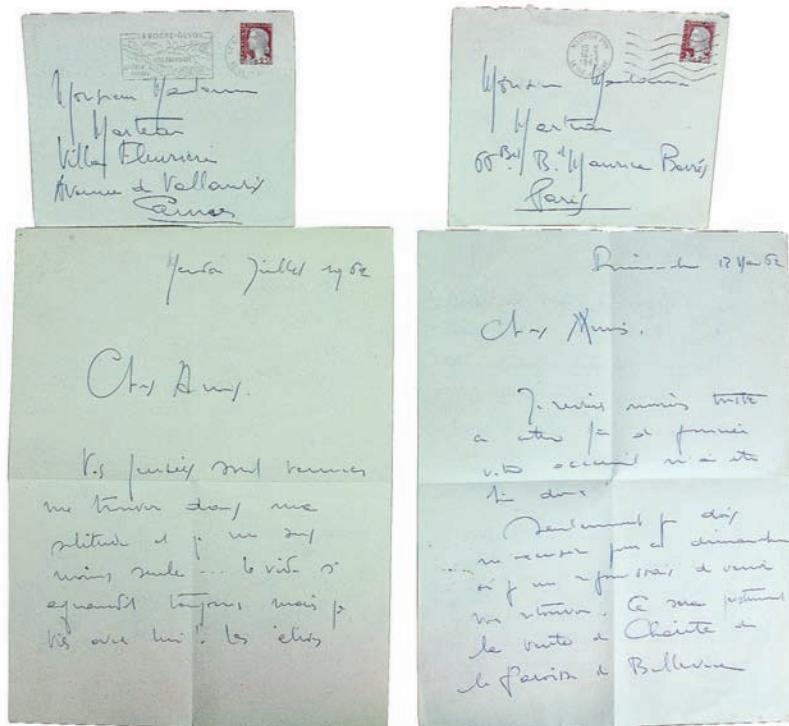 LA ROCHE-GUYON
Monsieur Madame
Villa Fleurière
Avenue de Vallauris
Cannes
Monsieur Madame
66 Bis B.d Maurice Barrès
Paris
Meudon Juillet 1962
Chers Amis.
Vos pensées sont venues
me trouver dans ma
solitude et je me sens
moins seule ... le vide s'
agrandit toujours mais je
vis avec lui !. les
Dimanche 13 Mai 62
Chers Amis.
Je revins moins triste
a cette fin de journée
votre accueil m'a été
Seulement je dois
m'excuser pour dimanche
où je me réjouissais de venir
vous retrouver. Ce sera justement
la vente de Charité de
la Paroisse de Bellevue